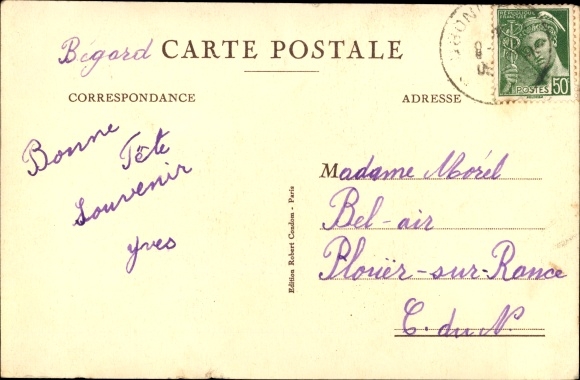 Bégard CARTE POSTALE
CORRESPONDANCE
ADRESSE
RÉPUBLIQUE FRANÇAISE
POSTES 50
Bonne
Fête
Souvenir
Yves
Edition Robert Condom - Paris
Madame Morel
Bel-air
Plouër-sur-Rance
C. du N.